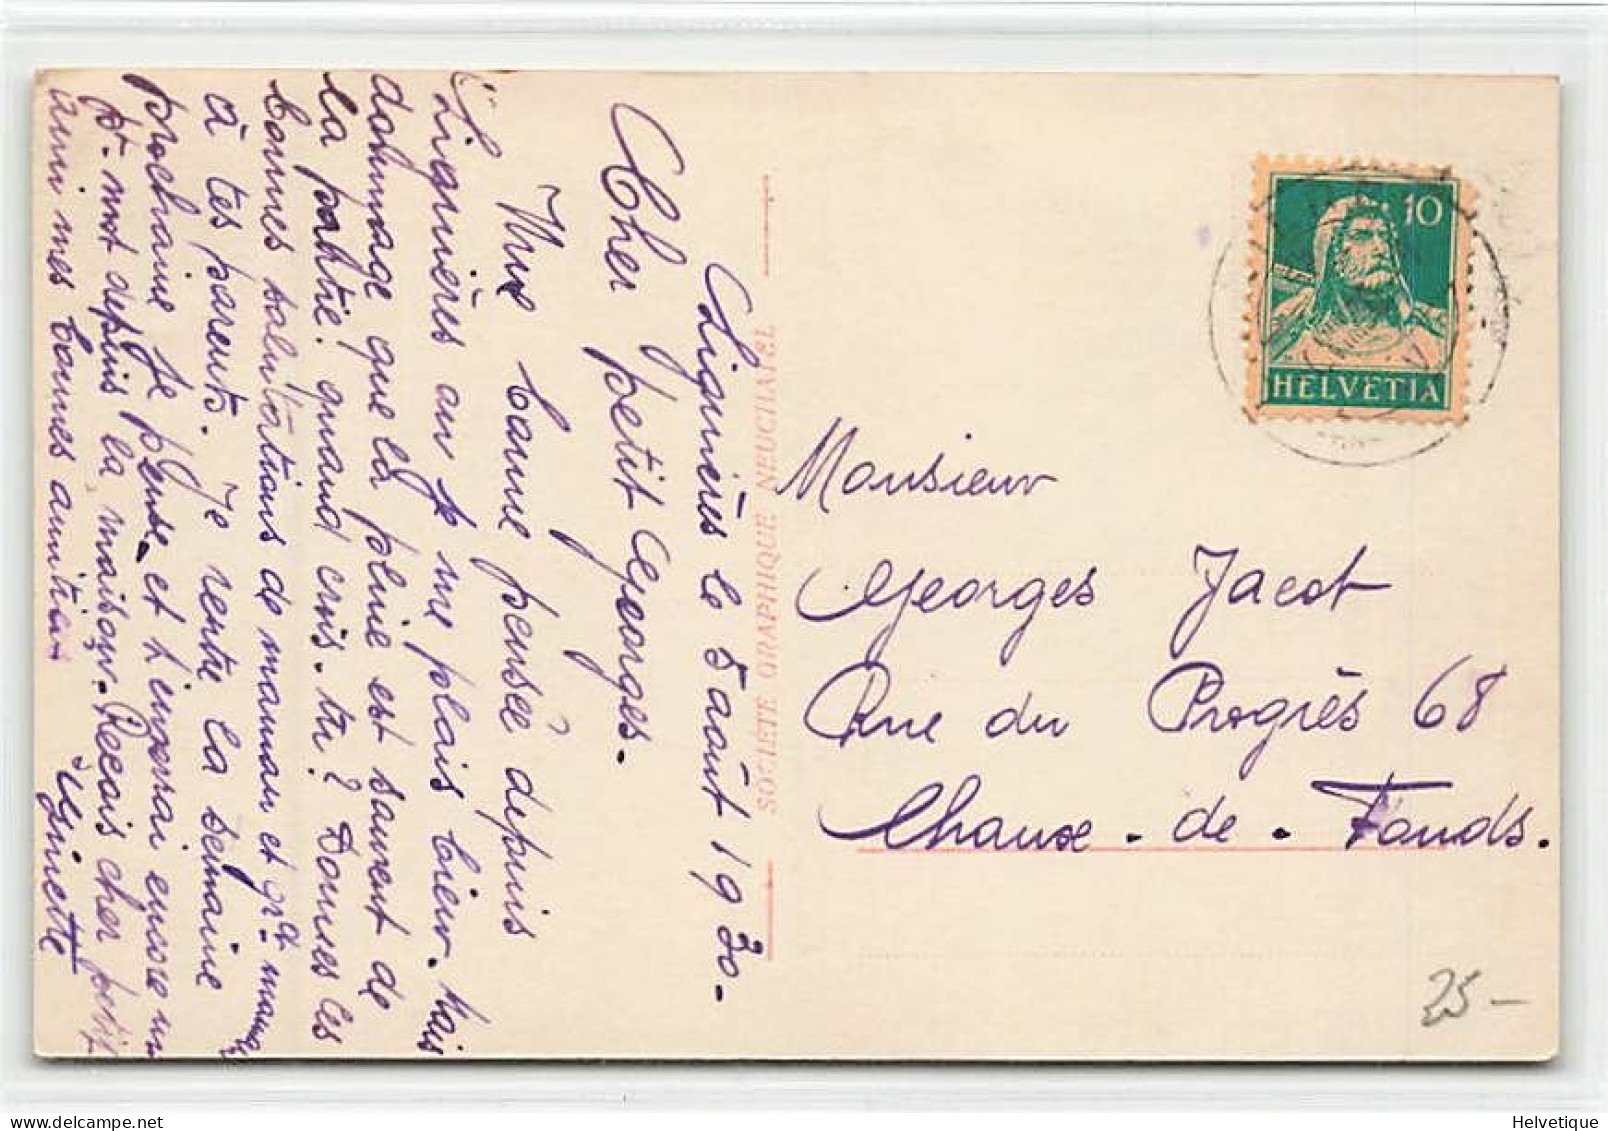 Lignières le 5 août 1930-
Cher petit Georges.
Une bonne pensée depuis
Lignières ou je me plais bien. Mais
dommage que la pluie est souvent de
la partie! quand crois-tu? Donnes les
bonnes salutations de maman et grd maman
à tes parents. Je rentre la semaine
prochaine je pense. et t'enverrai encore un
pt. mot depuis la maison. Reçois cher petit
ami mes bonnes amitiés
Ginette
SOCIÉTÉ GRAPHIQUE NEUCHATEL
10
HELVETIA
Monsieur
Georges Jacot
Rue du Progrès 68
Chaux-de-Fonds.
25-
Helvetique